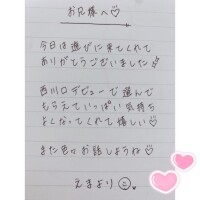 お兄様へ♡
今日は遊びに来てくれて
ありがとうございました♡
西川口デビューで選んで
もらえていっぱい気持ち
よくなってくれて嬉しい♡
また色々お話しようね♡
えまより